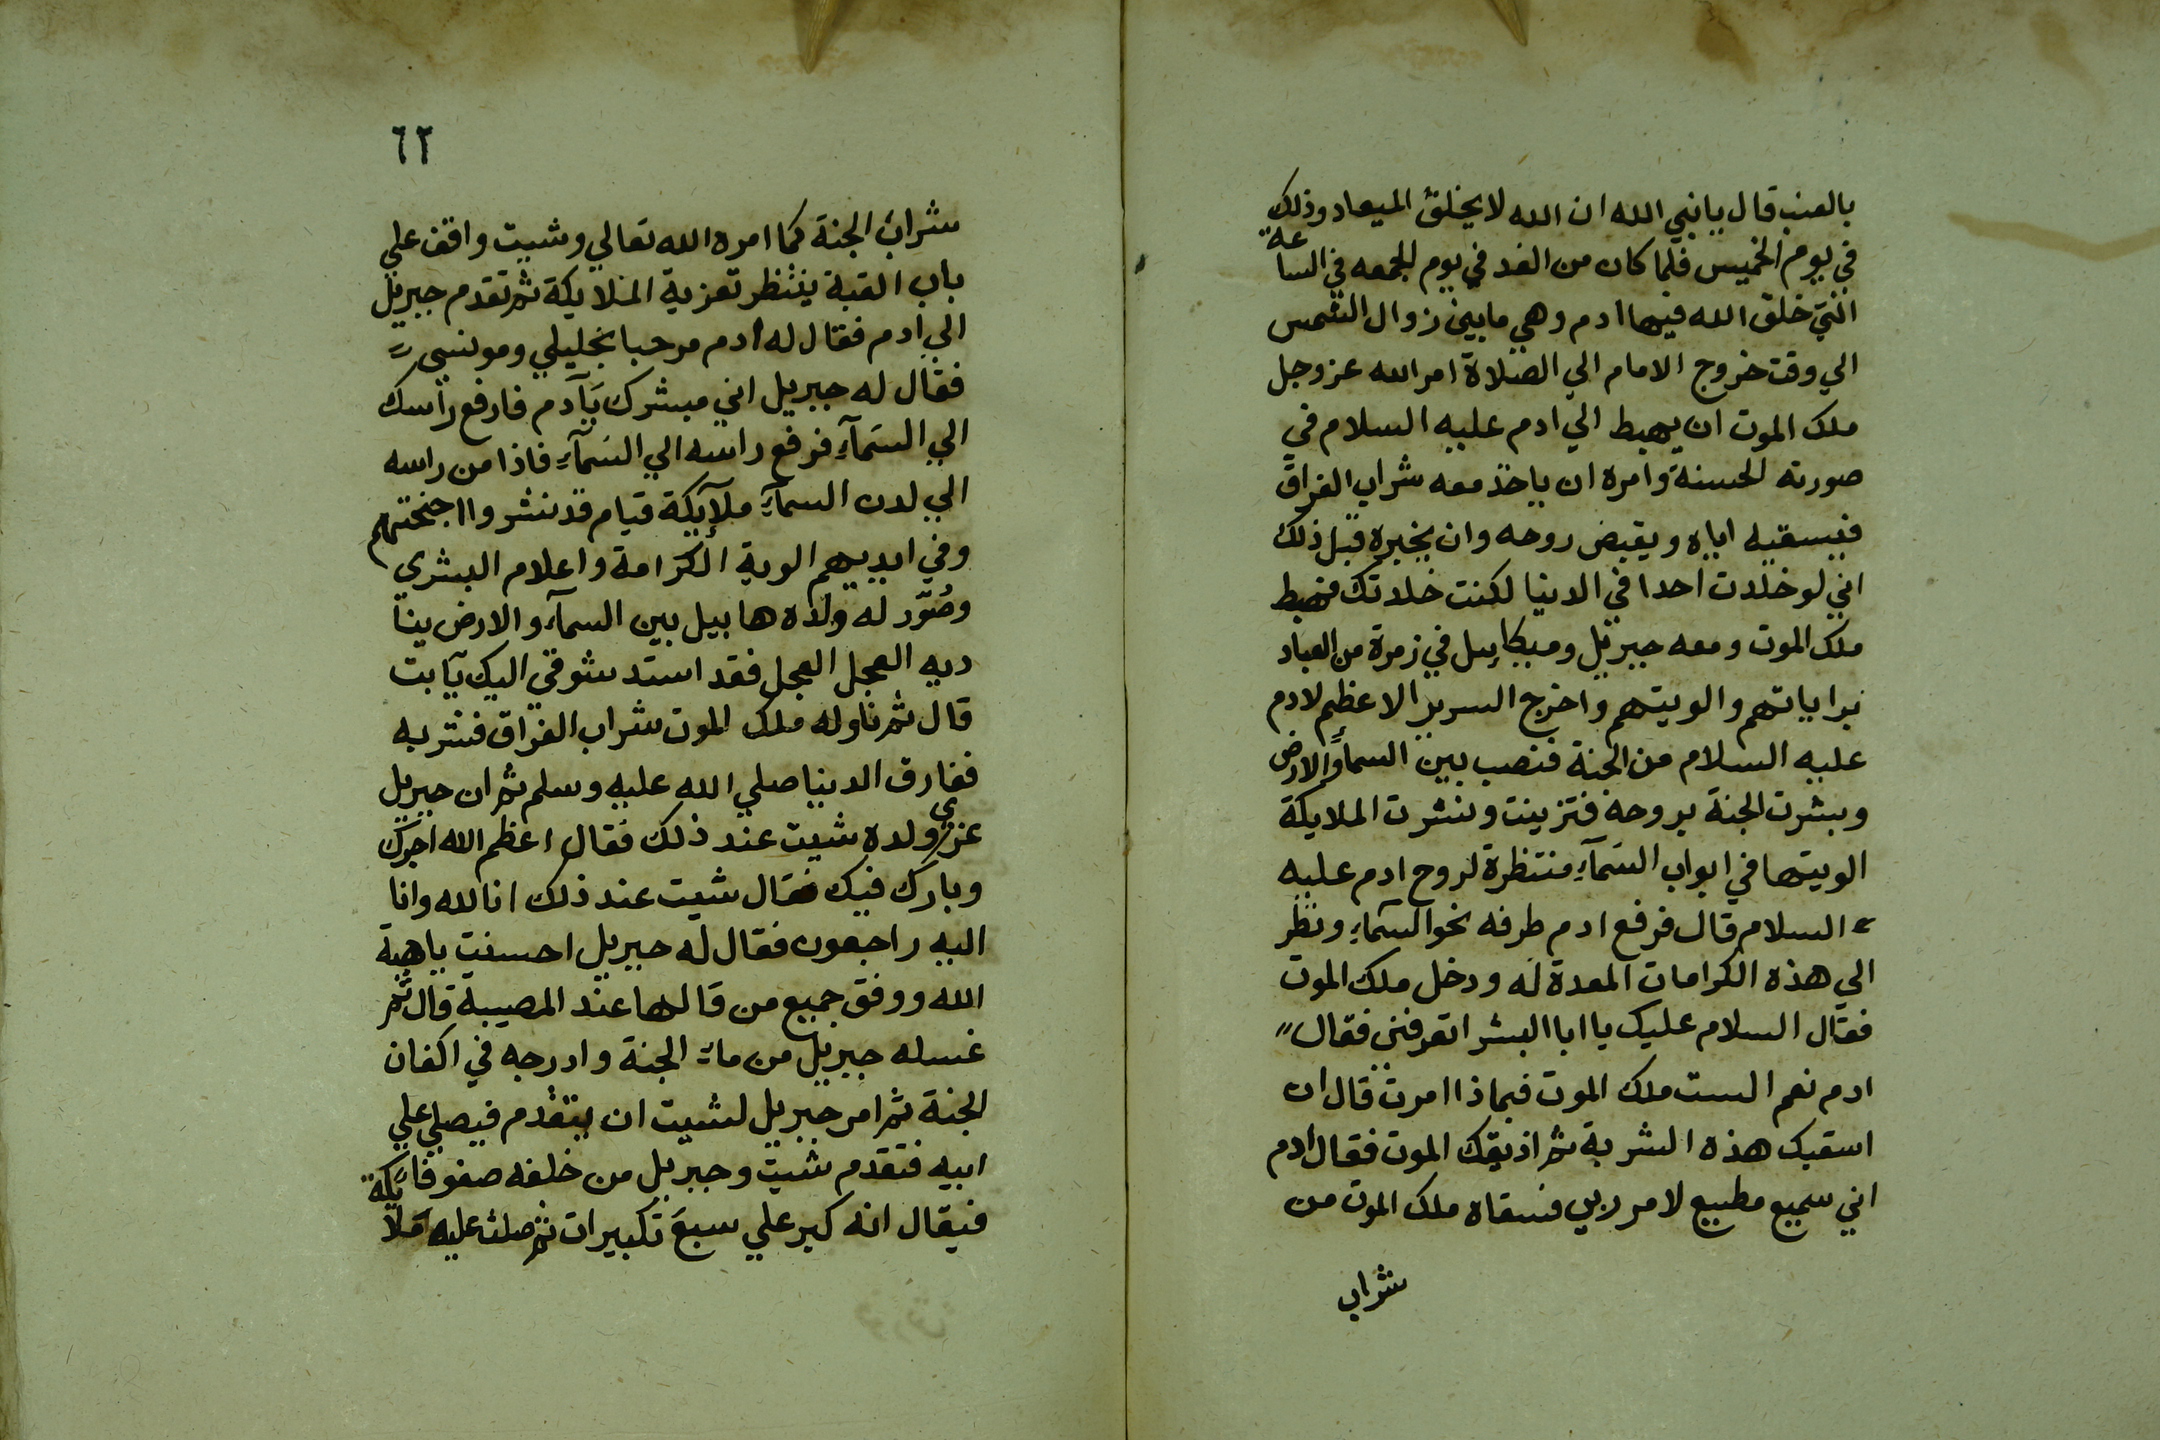 بالعنب قال يا نبي الله ان الله لا يخلف الميعاد وذلك
في يوم الخميس فلما كان من الغد في يوم الجمعه في الساعة
التي خلق الله فيها ادم وهي ما بين زوال الشمس
الي وقت خروج الامام الي الصلاة امر الله عز وجل
ملك الموت ان يهبط الي ادم عليه السلام في
صورته الحسنة وامره ان ياخذ معه شراب الفراق
فيسقيه اياه ويقبض روحه وان يخبره قبل ذلك
اني لو خلدت احدا في الدنيا لكنت خلدتك فهبط
ملك الموت ومعه جبريل وميكاييل في زمرة من العباد
براياتهم والويتهم واخرج السرير الاعظم لادم
عليه السلام من الجنة فنصب بين السماء والارض
وبشرت الجنة بروحه فتزينت ونشرت الملايكة
الويتها في ابواب السمآء منتظرة لروح ادم عليه
السلام قال فرفع ادم طرفه نحو السمآء ونظر
الي هذه الكرامات المعدة له ودخل ملك الموت
فقال السلام عليك يا ابا البشر اتعرفني فقال
ادم نعم الست ملك الموت فبماذا امرت قال ان
اسقيك هذه الشربة ثم اذيقك الموت فقال ادم
اني سميع مطيع لامر ربي فسقاه ملك الموت من
شراب
٦٢
شراب الجنة كما امره الله تعالي وشيث واقف علي
باب القبة ينتظر تعزية الملايكة ثم تقدم جبريل
الي ادم فقال له ادم مرحبا بخليلي ومونسي
فقال له جبريل اني مبشرك يآدم فارفع راسك
الي السمآء فرفع راسه الي السمآء فاذا من راسه
الي لدن السمآء ملآيكة قيام قد نشروا اجنحتهم
وفي ايديهم الوية الكرامة واعلام البشري
وصُوّر له ولده هابيل بين السمآء والارض ينا
ديه العجل العجل فقد استد شوقي اليك يآبت
قال ثم ناوله ملك الموت شراب الفراق فشربه
ففارق الدينا صلي الله عليه وسلم ثم ان جبريل
عزي ولده شيث عند ذلك فقال اعظم الله اجرك
وبارك فيك فقال شيث عند ذلك انا لله وانا
اليه راجعون فقال له جبريل احسنت ياهبة
الله ووفق جميع من قالها عند المصيبة قال ثم
غسله جبريل من ماء الجنة وادرجه في اكفان
الجنة ثم امر جبريل لشيث ان يتقدم فيصلي علي
ابيه فتقدم شيث وجبريل من خلفه صفوفا
فيقال انه كبر علي سبع تكبيرات ثم صلت عليه ملايكة